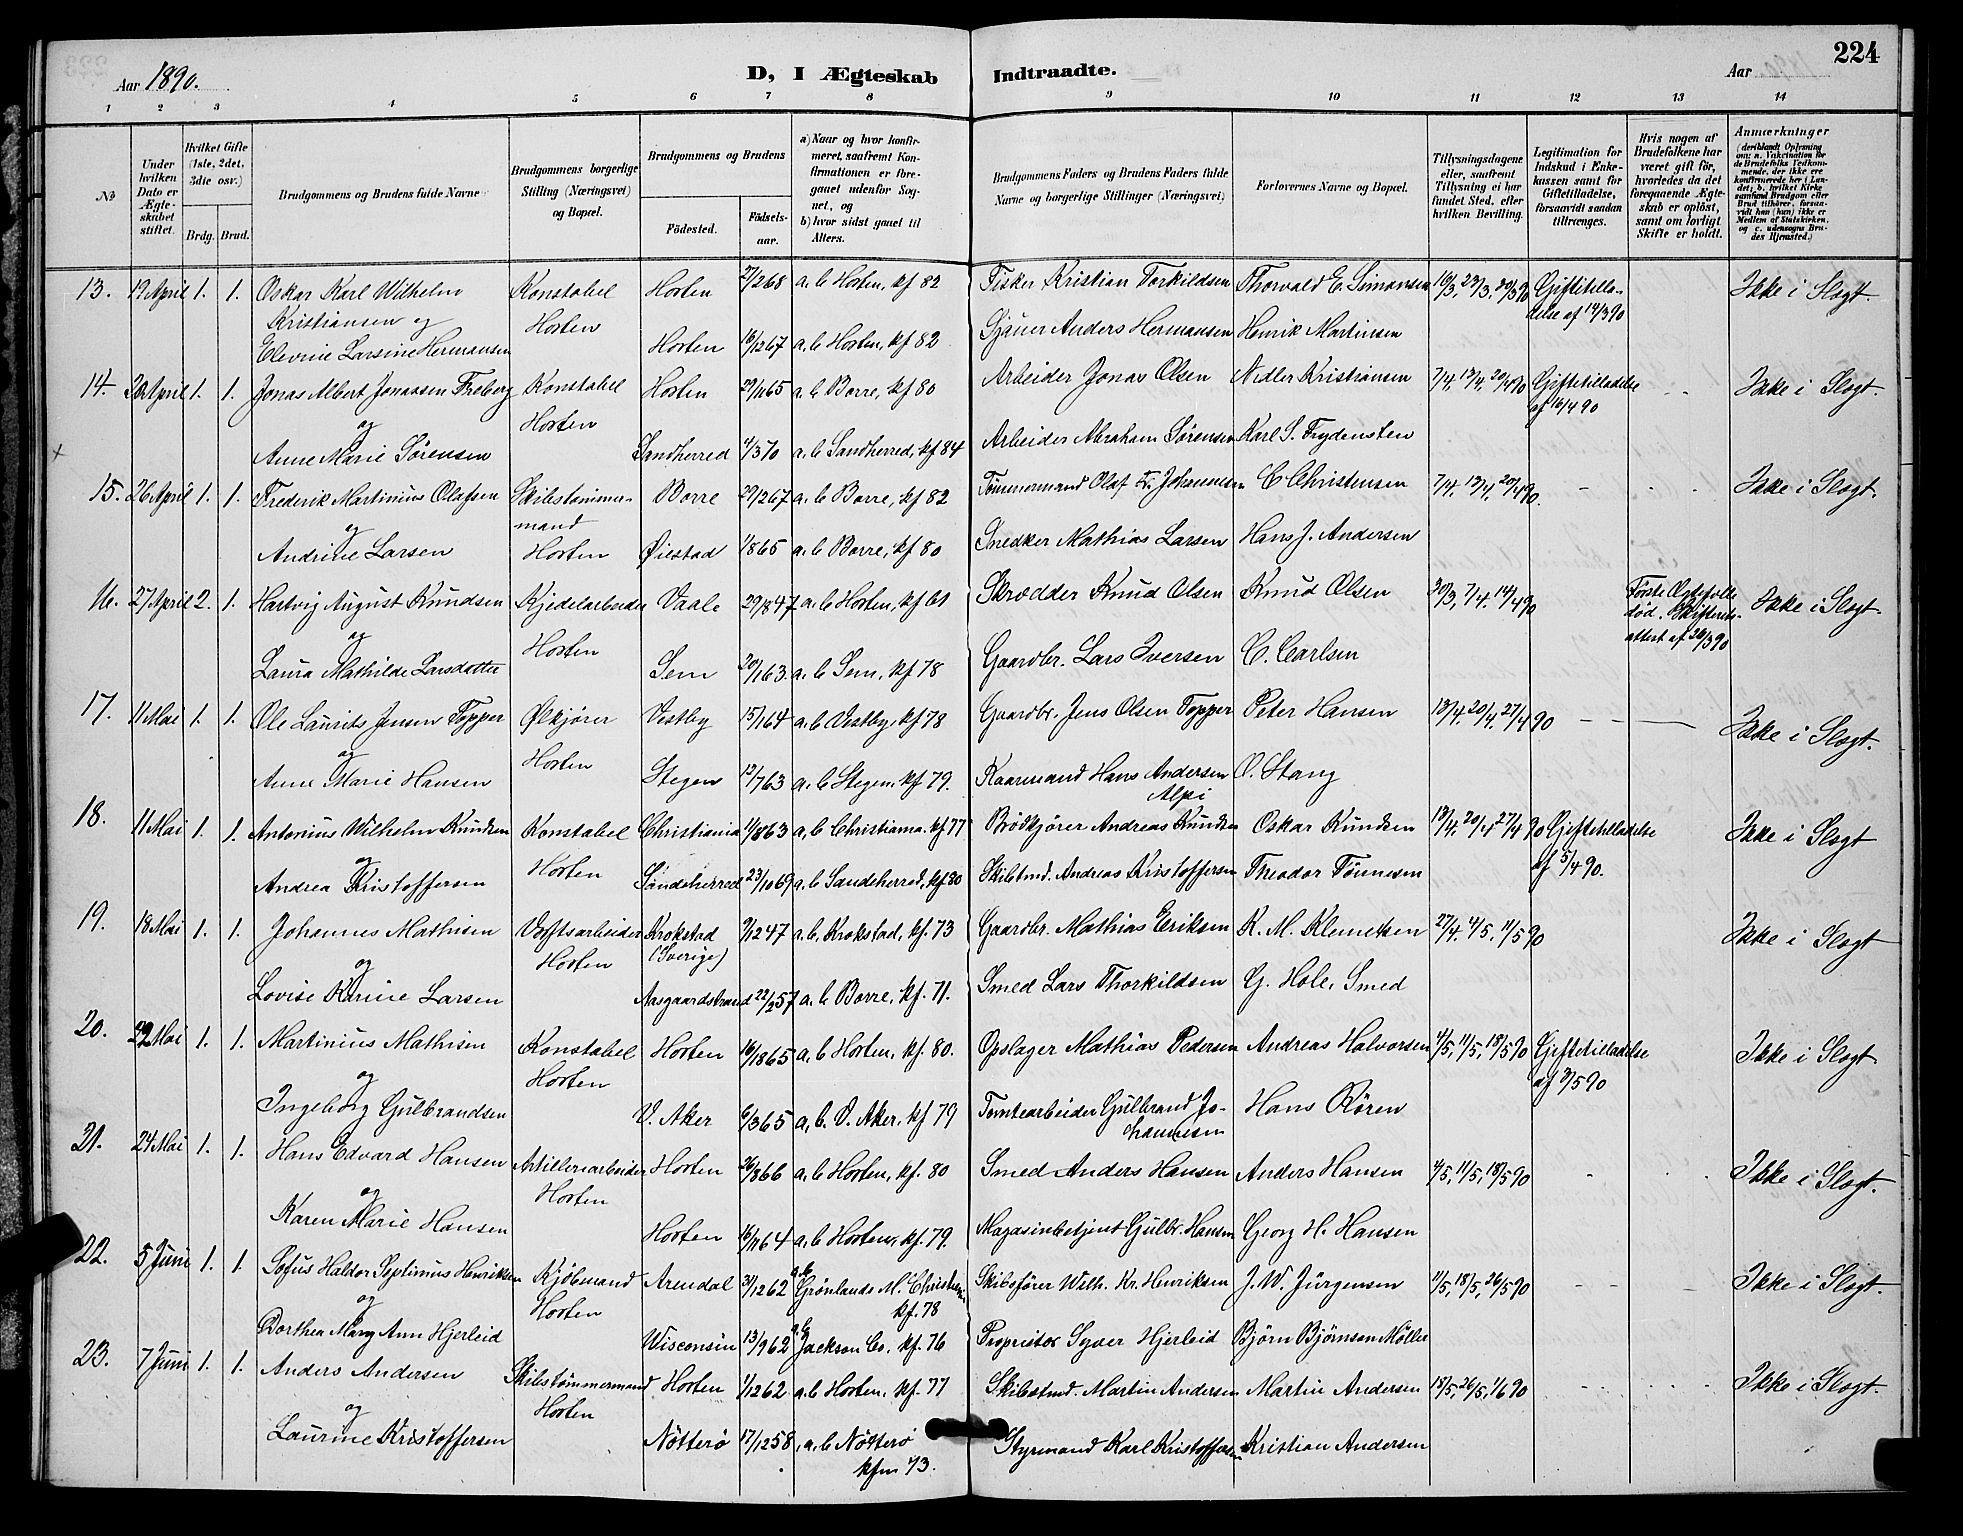 224
Aar 1890.
D, I Ægteskab Indtraadte.
Aar
1 2 3 4 5 6 7 8 9 10 11 12 13 14
No
Under hvilken Dato er Ægteskabet stiftet.
Hvilket Gifte (1ste, 2det, 3die osv.)
Brdg. Brud.
Brudgommens og Brudens fulde Navne
Brudgommens borgerlige Stilling (Næringsvei) og Bopæl.
Brudgommens og Brudens
Födested.
Födsels-aar.
a) Naar og hvor konfirmeret, saafremt Konfirmationen er foregaaet udenfor Sognet, og
b) hvor sidst gaaet til Alters.
Brudgommens Faders og Brudens Faders fulde Navne og borgerlige Stillinger (Næringsvei)
Forlovernes Navne og Bopæl.
Tillysningsdagene eller, saafremt Tillysning ei har fundet Sted, efter hvilken Bevilling.
Legitimation for Indskud i Enkekassen samt for Giftetilladelse, forsaavidt saadan tiltrænges.
Hvis nogen af Brudefolkene har været gift för, hvorledes da det foregaaende Ægteskab er oplöst, samt om lovligt Skifte er holdt.
Anmærkninger
(deriblandt Oplysning om: a. Vakcination for de Brudefolks Vedkommende, der ikke ere konfirmerede her i Landet; b. hvilket Kirkesamfund Brudgom eller Brud tilhörer, forsaavidt han (hun) ikke er Medlem af Statskirken, og c. udensogns Brudes Hjemsted.)
13. 19 April 1. 1. Oskar Karl Wilhelm Konstabel Horten 27/2 68 a. b Horten, kf 82 Fisker Kristian Torkildsen Thorvald E. Simonsen 16/3, 23/3, 30/3 90 Giftetilla- Ikke i Slægt.
Kristiansen og Horten delse af 14/3 90
Elevine Larsine Hermansen Horten 16/12 67 a. b Horten, kf 82 Sjauer Anders Hermansen Henrik Martinsen
14. 20 April 1. 1. Jonas Albert Jonassen Freberg Konstabel Horten 29/11 65 a. b Borre, kf 80 Arbeider Jonas Olsen Nidler Kristiansen 7/4, 13/4, 20/4 90 Giftetilladelse Ikke i Slægt.
og Horten af 16/4 90
Anne Marie Sørensen Sandherred 4/3 70 a. b Sandherred, kf 84 Arbeider Abraham Sørensen Karl S. Frydensten
15. 26 April 1. 1. Frederik Martinius Olafsen Skibstømmer- Borre 29/2 67 a. b Borre, kf 82 Tømmermand Olaf Fr. Johannesen C. Christensen 7/4, 13/4, 20/4 90. Ikke i Slægt.
og mand
Andrine Larsen Horten Øiestad 1/8 65 a. b Borre, kf 80 Snedker Mathias Larsen Hans J. Andersen
16. 27 April 2. 1. Hartvig August Knudsen Kjedelarbeider Vaale 29/8 47 a. b Horten, kf 61 Skrædder Knud Olsen Knud Olsen 30/3, 7/4, 14/4 90 Første Ægtefælle Ikke i Slægt
og Horten død. Skifterets-
Laura Mathilde Larsdatter Sem 20/1 63 a. b Sem, kf 78 Gaardbr. Lars Iversen C. Carlsen attest af 26/3 90
17. 11 Mai 1. 1. Ole Laurits Jensen Topper Ølkjører Vestby 15/1 64 a. b Vestby, kf 78 Gaardbr. Jens Olsen Topper Peter Hansen 13/4, 20/4, 27/4 90 Ikke i Slægt.
og Horten
Anne Marie Hansen Stegen 12/7 63 a. b Stegen, kf 79. Kaarmand Hans Andersen Alpi O. Stang
18. 11 Mai 1. 1. Antonius Wilhelm Knudsen Konstabel Christiania 1/8 63 a. b Christiania. kf 77 Brødkjører Andreas Knudsen Oskar Knudsen 13/4, 20/4 27/4 90 Giftetilladelse Ikke i Slægt
og Horten af 5/4 90.
Andrea Kristoffersen Sandeherred 23/10 69 a. b Sandeherred, kf 80 Skibstmd. Andreas Kristoffersen Theodor Tønnesen
19. 18 Mai 1. 1. Johannes Mathisen Værftsarbeider Krokstad 9/12 47 a. b. Krokstad, kf. 73 Gaardbr. Mathias Eriksen K. M. Klemetsen 27/4, 4/5, 11/5 90 Ikke i Slægt
og Horten (Sverige)
Lovise Karine Larsen Aasgaardstrand 22/2 57 a. b Borre, kf. 71. Smed Lars Thorkildsen G. Hole, Smed
20. 22 Mai 1. 1. Martinius Mathisen Konstabel Horten 16/8 65 a. b Horten, kf. 80. Opslager Mathias Pedersen Andreas Halvorsen 4/5, 11/5, 18/5 90 Giftetilladelse Ikke i Slægt
og Horten af 3/5 90
Ingeborg Gulbrandsen V. Aker 6/3 65 a. b. V. Aker, kf 79 Tomtearbeider Gulbrand Jo- Hans Røren
hannesen
21. 24 Mai 1. 1. Hans Edvard Hansen Artilleriarbeider Horten 26/8 66 a. b Horten, kf. 80 Smed Anders Hansen Anders Hansen 4/5, 11/5, 18/5 90 Ikke i Slægt.
og Horten
Karen Marie Hansen Horten 16/11 64 a. b Horten, kf. 79. Magasinbetjent Gulbr. Hansen Georg H. Hansen
22. 5 Juni 1. 1. Sofus Haldor Septimus Henriksen Kjøbmand Arendal 31/12 62 a. b. Grønlands M. Christiania Skibsfører Wilh. Kr. Henriksen J. W. Jürgensen 11/5, 18/5, 26/5 90 Ikke i Slægt.
og Horten kf. 78
Dorthea Mary Ann Hjerleid Wisconsin 13/9 62 a. b. Jackson Co. kf. 76 Proprietær Syver Hjerleid Bjørn Bjørnson Møller
23. 7 Juni 1. 1. Anders Andersen Skibstømmermand Horten 1/12 62 a. b Horten, kf. 77 Skibstmd. Martin Andersen Martin Andersen 18/5, 26/5, 1/6 90 Ikke i Slægt.
og Horten
Laurine Kristoffersen Nøtterø 17/12 58 a. b Nøtterø Styrmand Karl Kristoffersen Kristian Andersen
kfm 73.